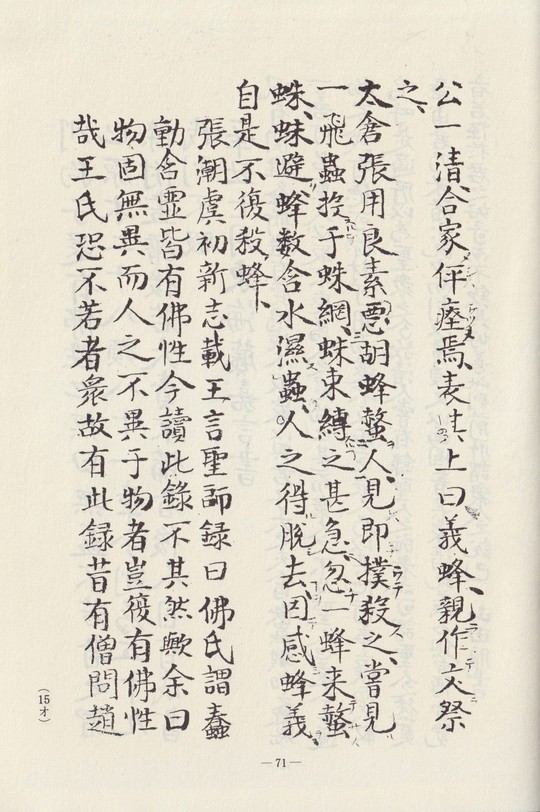 公一清合家俾瘞焉、表其上曰義蜂、親作文祭
之、
太倉張用良素惡胡蜂螫人、見即撲殺之、嘗見
一飛蟲投于蛛網、蛛束縛之甚急、忽一蜂来螫
蛛、蛛避、蜂数含水濕蟲、人之得脱去、因感蜂義、
自是不復殺蜂、
張潮虞初新志載王言聖師録曰佛氏謂蠢
動含霊皆有佛性今讀此錄不其然歟余曰
物固無異而人之不異于物者豈復有佛性
哉王氏恐不若者衆故有此録昔有僧問趙
(15オ)
—71—